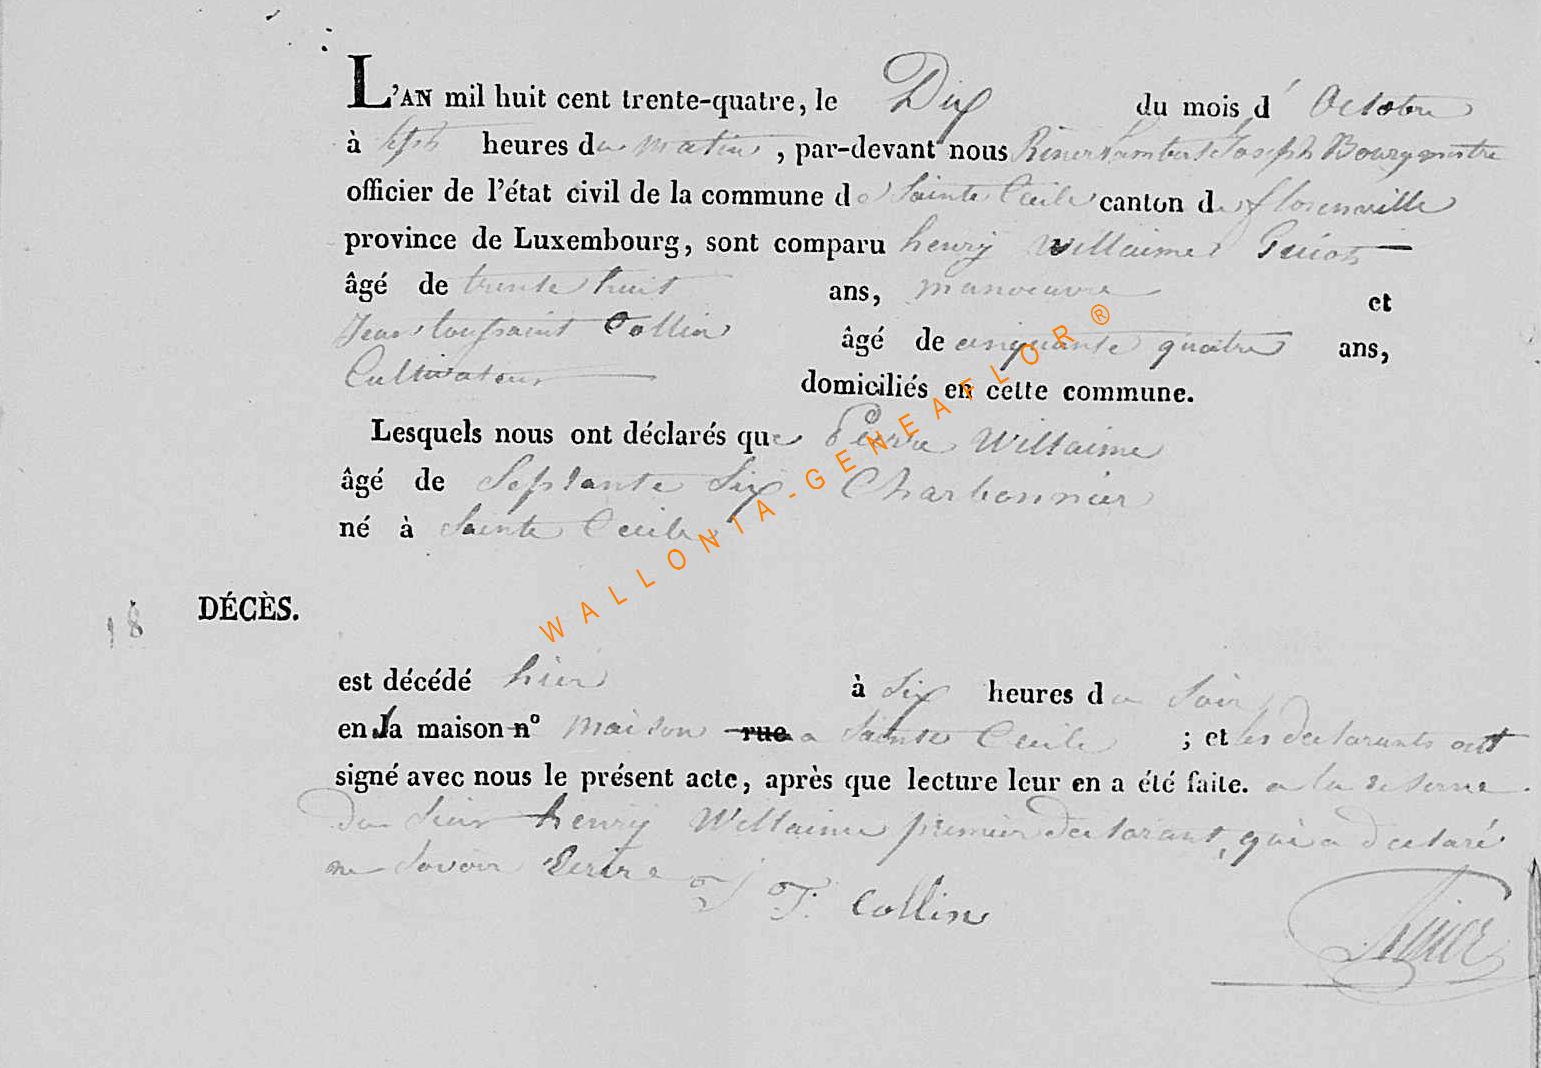 L'AN mil huit cent trente-quatre, le Dix du mois d' Octobre
à sept heures du matin, par-devant nous Riner Lambert Joseph Bourgmestre
officier de l'état civil de la commune de Sainte Cecile canton de florenville
province de Luxembourg, sont comparu henry Willaime
âgé de trente huit ans, manoeuvre et
Jean toussaint Collin âgé de cinquante quatre ans,
Cultivateur domiciliés en cette commune.
Lesquels nous ont déclarés que Pierre Willaime
âgé de Septante Six Charbonnier
né à Sainte Cecile
WALLONIA-GENEAFLOR ®
18 DÉCÈS.
est décédé hier à Six heures du Soir
en la maison n° maison rue a Sainte Cecile ; et les declarants ont
signé avec nous le présent acte, après que lecture leur en a été faite. a la reserve
du Sieur henry Willaime premier declarant, qui a declaré
ne Savoir Ecrire J T. Collin
Riner